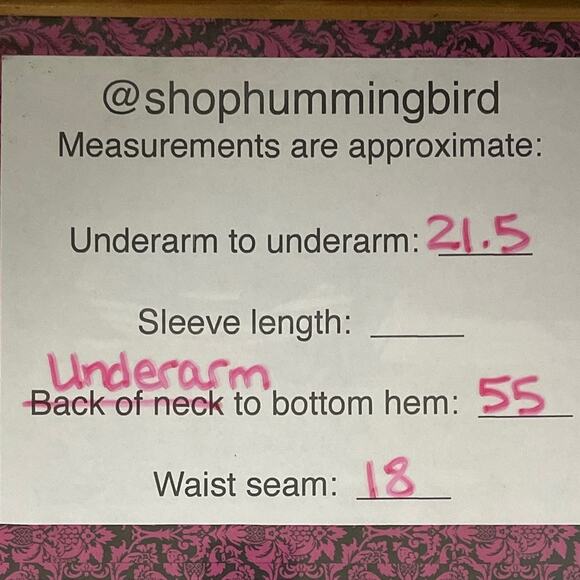 @shophummingbird
Measurements are approximate:
Underarm to underarm: 21.5
Sleeve length:
Underarm
Back of neck to bottom hem: 55
Waist seam: 18